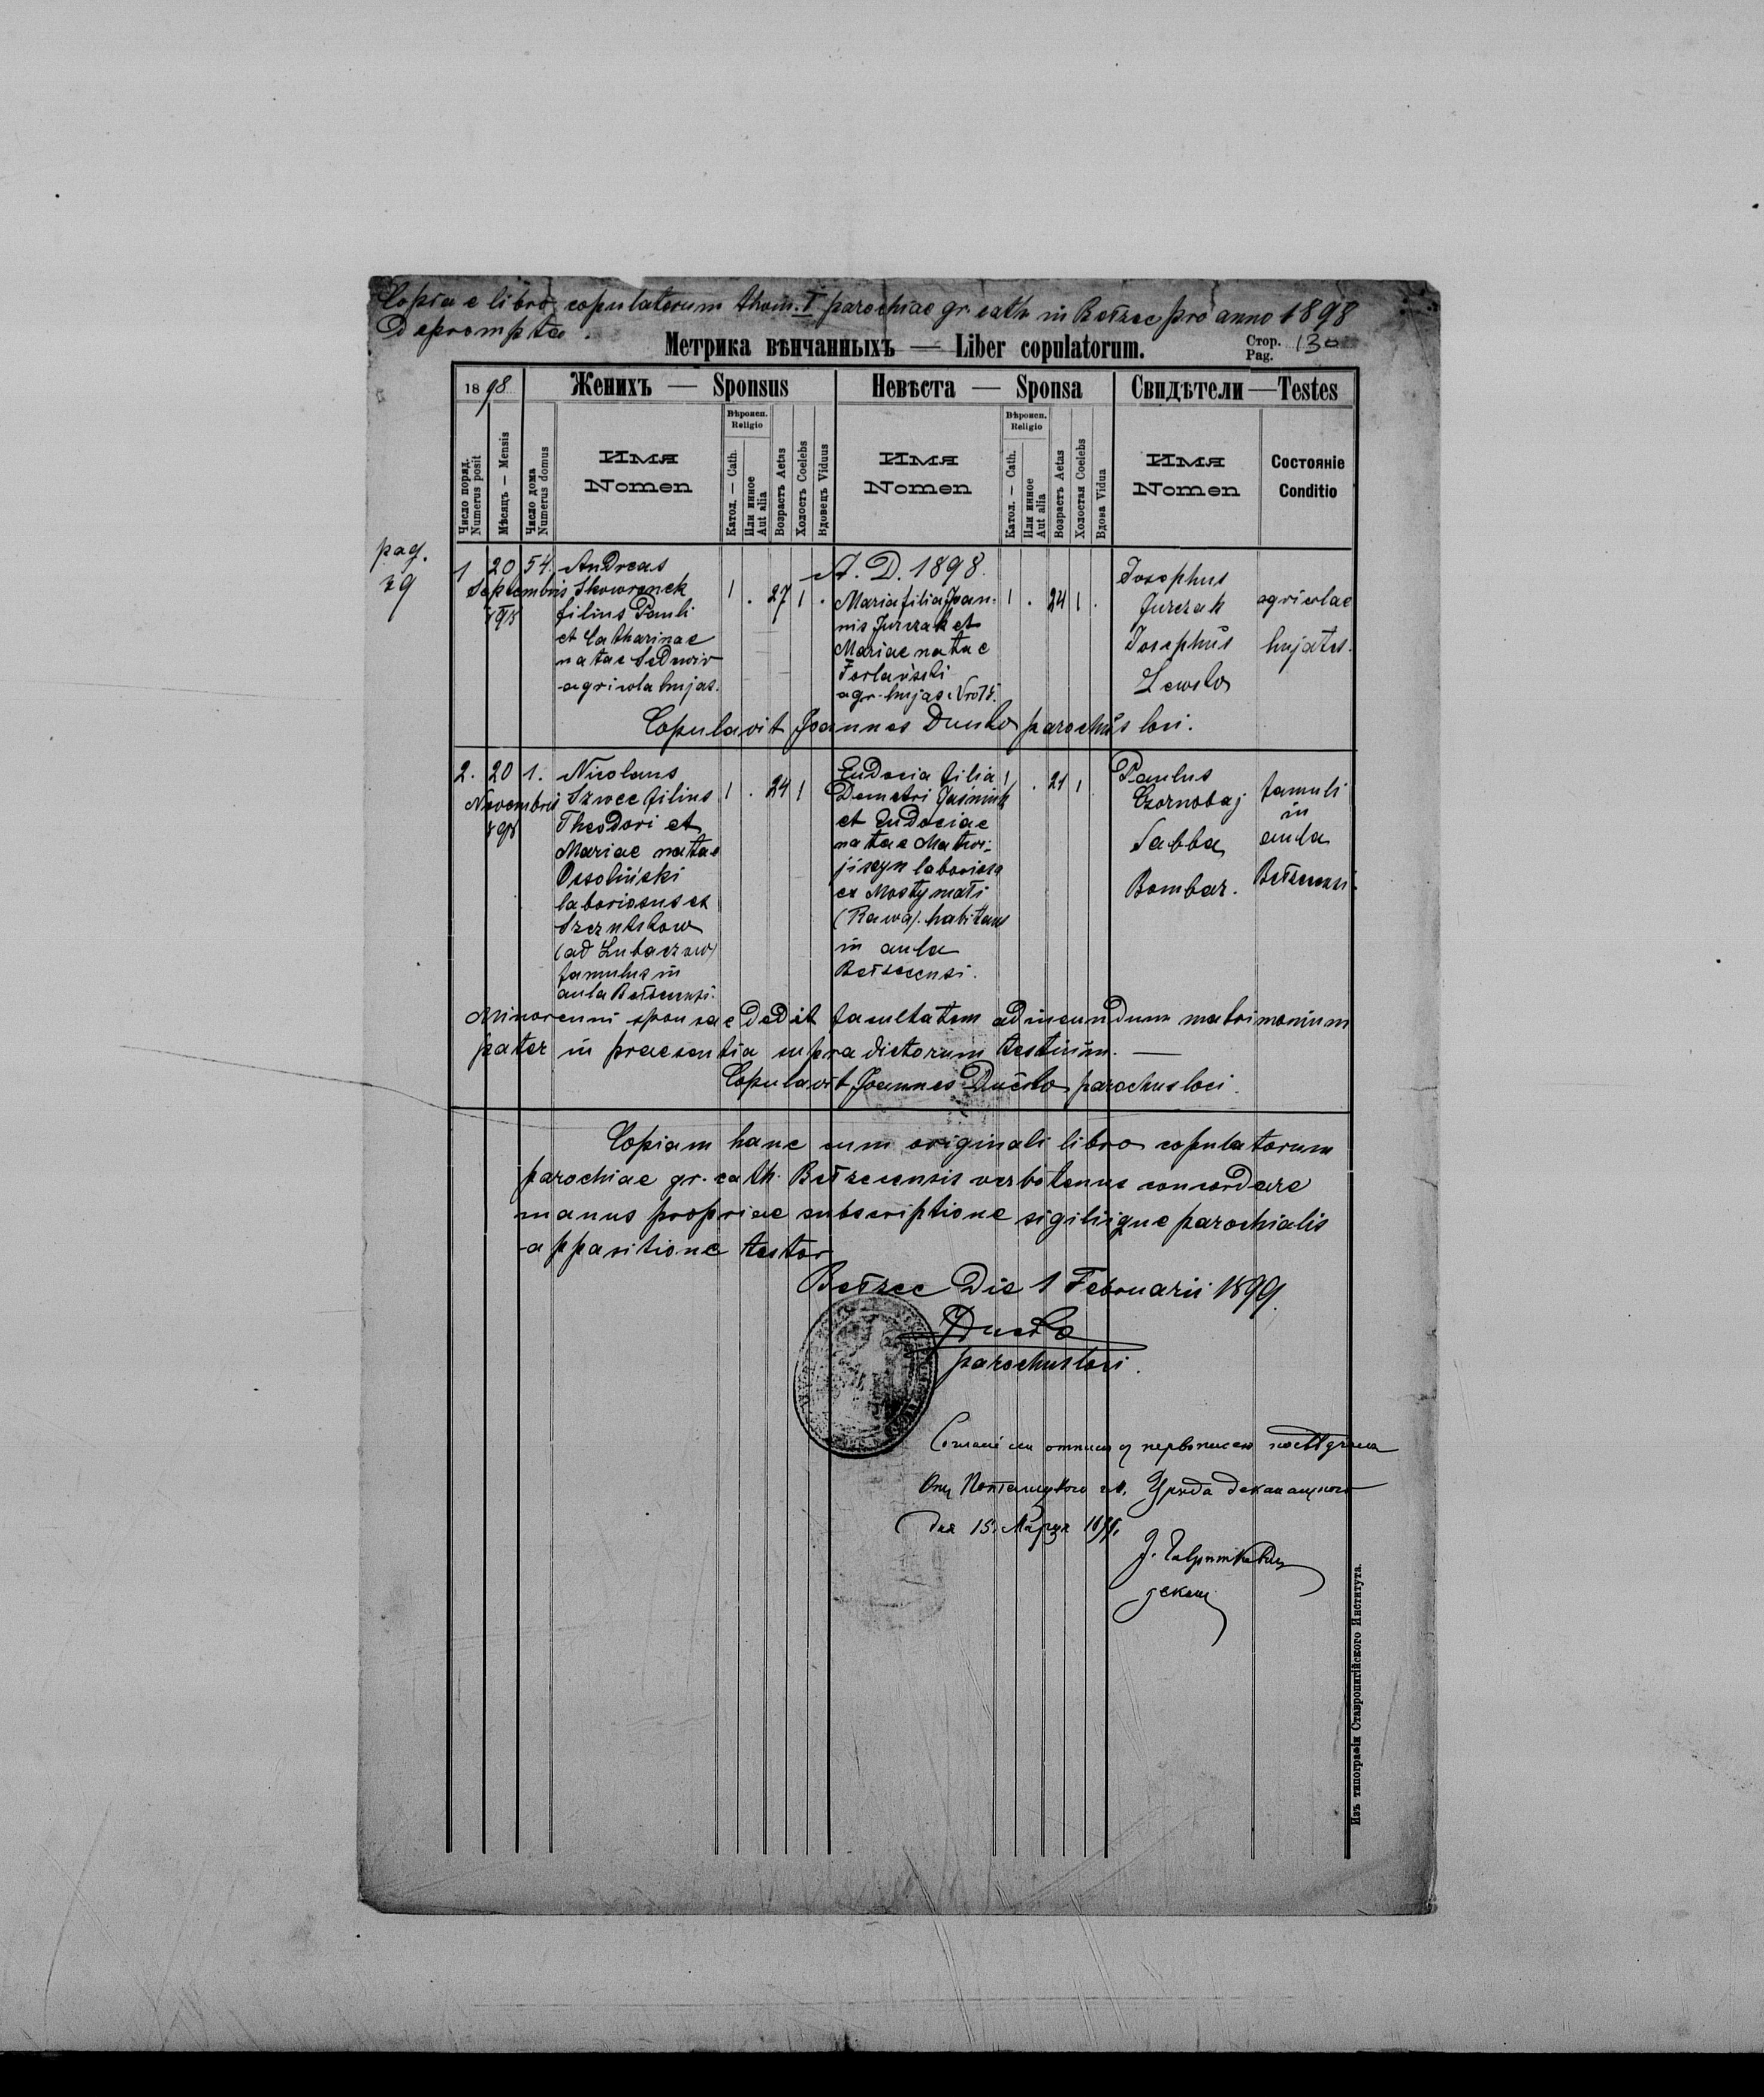 Copia e libro copulatorum thom. I parochiae gr. cath in Bełzec pro anno 1898
Deprompta.
Метрика вѣнчанныхъ — Liber copulatorum.
Стор. Pag. 130
1898
Женихъ — Sponsus
Невѣста — Sponsa
Свидѣтели — Testes
Число поряд. Numerus posit
Мѣсяцъ — Mensis
Число дома Numerus domus
Имя Nomen
Вѣроисп. Religio
Катол. — Cath.
Или инное Aut alia
Возрастъ Aetas
Холостъ Coelebs
Вдовецъ Viduus
Имя Nomen
Вѣроисп. Religio
Катол. — Cath.
Или инное Aut alia
Возрастъ Aetas
Холостая Coelebs
Вдова Vidua
Имя Nomen
Состояніе Conditio
pag.
39
1. 20 Septembris 898
54.
Andreas
Skowronek
filius Pauli
et Catharinae
natae
agricola hujas.
1 . 27 1 .
A. D. 1898.
Maria filia Joan-
nis Jurczak et
Mariae natae
agr. hujas
1 . 24 1 .
Josephus
Jurczak
Josephus
Lewko
agricolae
hujates.
Copulavit Joannes Ducko parochus loci.
2. 20 Novembris 898
1.
Nicolaus
Szwec filius
Theodori et
Mariae natae
Ossoliński
laboriosus ex
Szczutków
(ad Lubaczow)
famulus in
aula Bełzecensi.
1 . 24 1
Eudocia filia
Demetri Jaśniuk
et Eudociae
natae Matwi-
jiszyn laboriosa
ex Mosty małi
(Rawa). habitans
in aula
Bełzecensi.
1 . 21 1
Paulus
Czornobaj
Sabba
Bombar.
famuli
in
aula
Bełzecensi.
Minorenni sponsae dedit facultatem ad ineundum matrimonium
pater in praesentia supra dictorum testium. —
Copulavit Joannes Ducko parochus loci.
Copiam hanc cum originali libro copulatorum
parochiae gr. cath. Bełzecensis verbotenus concordare
manus propriae subscriptione sigiliique parochialis
appositione testor
Bełzec Die 1 Februarii 1899.
Ducko
parochus loci.
дня 15. Марця
декан
Изъ типографіи Ставропигійского Института.